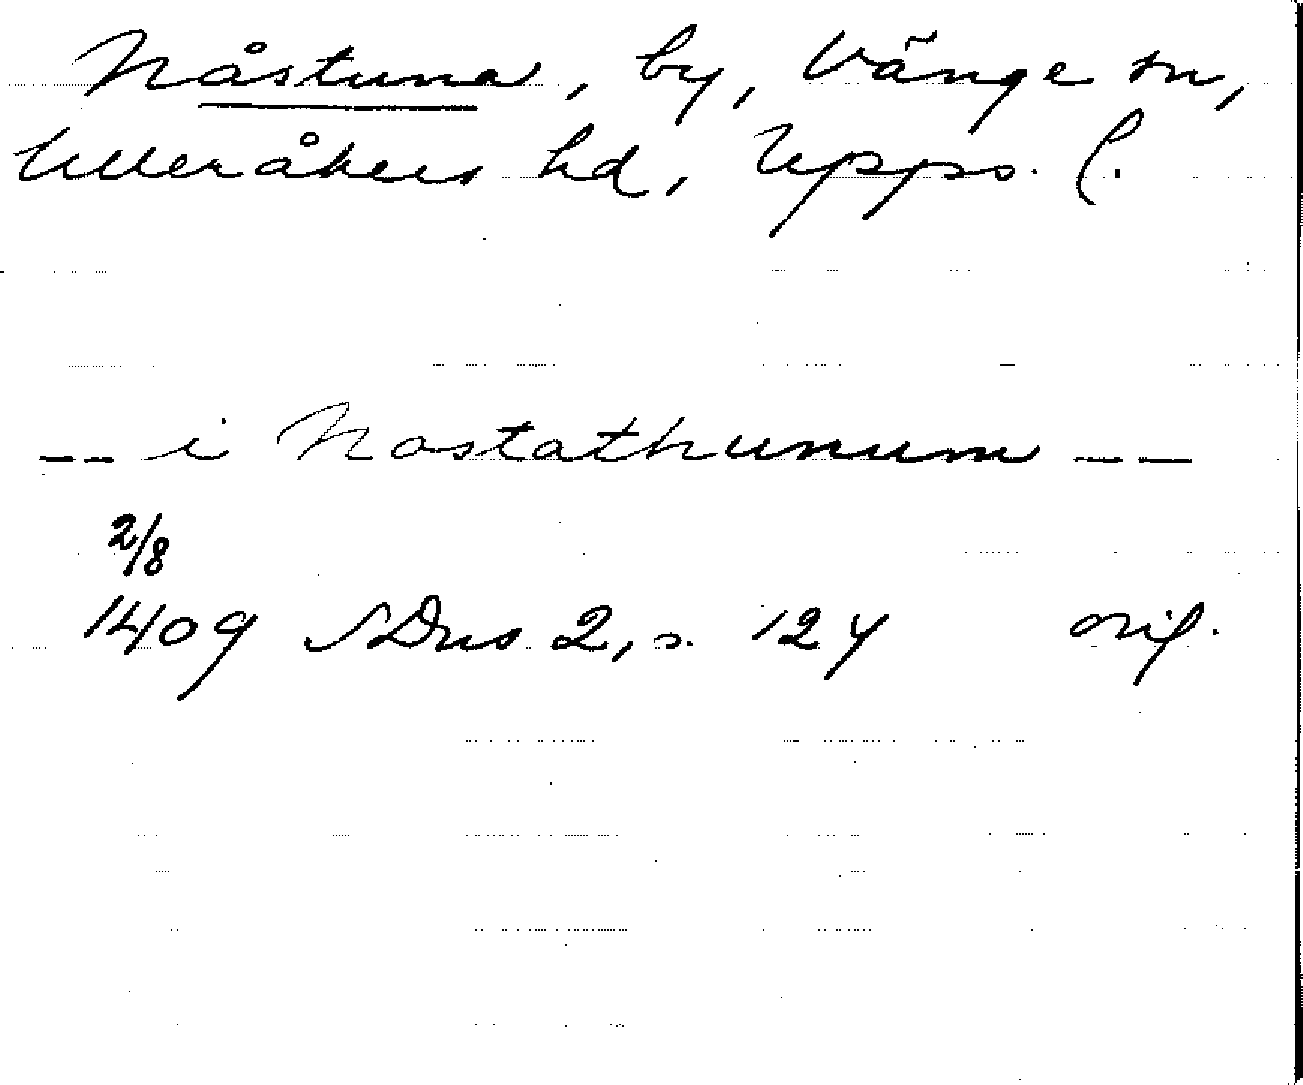 Nåstuna, by, Vänge sn,
Ulleråkers hd, Upps. l.
-- i Nostathunum --
2/8
1409 SDns 2, s. 124 orig.